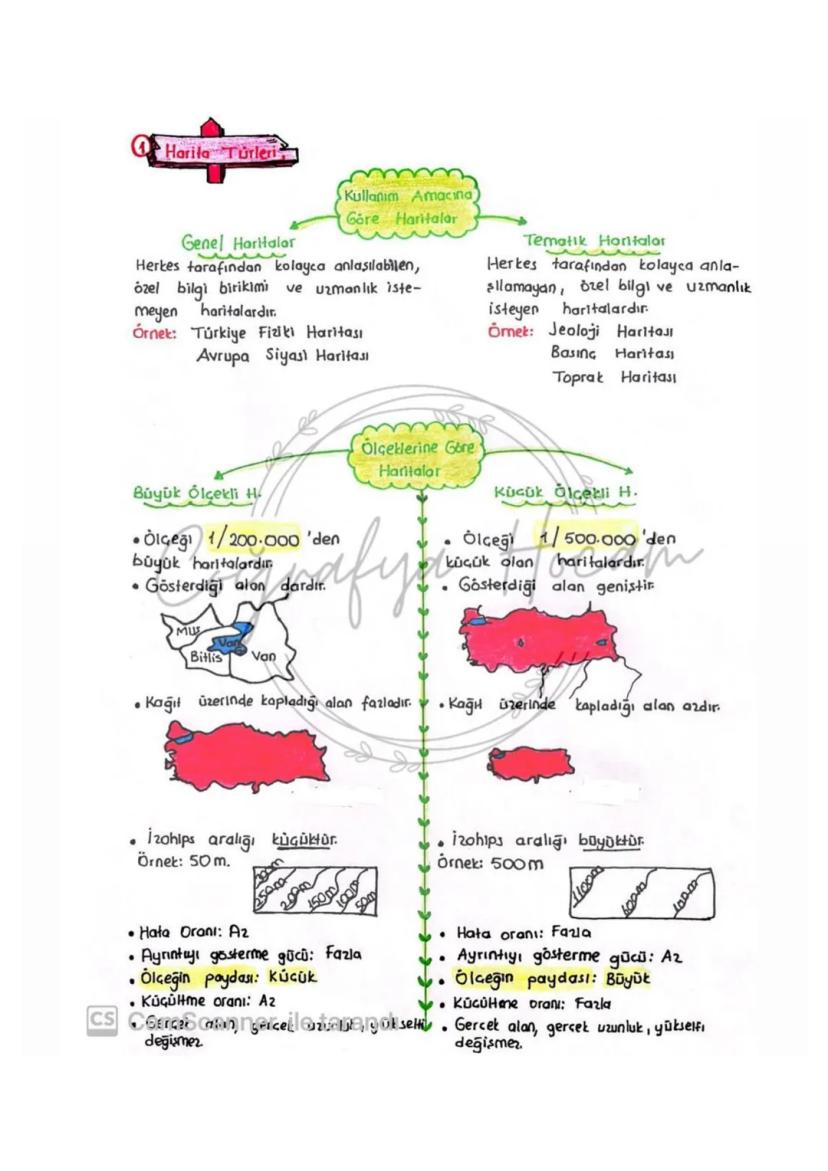 1 Harita Türleri
Kullanım Amacına
Göre Haritalar
Genel Haritalar
Herkes tarafından kolayca anlaşılabilen,
özel bilgi birikimi ve uzmanlık iste-
meyen haritalardır.
Örnek: Türkiye Fiziki Haritası
Avrupa Siyasi Haritası
Tematik Haritalar
Herkes tarafından kolayca anla-
şılamayan, özel bilgi ve uzmanlık
isteyen haritalardır.
Örnek: Jeoloji Haritası
Basınç Haritası
Toprak Haritası
Ölçeklerine Göre
Haritalar
Büyük Ölçekli H.
• Ölçeği 1/200.000 'den
büyük haritalardır.
• Gösterdiği alan dardır.
Muş
Van
Bitlis
Van
• Kağıt üzerinde kapladığı alan fazladır.
• İzohips aralığı küçüktür.
Örnek: 50 m.
250m
200m
150m
100m
50m
• Hata Oranı: Az
• Ayrıntıyı gösterme gücü: Fazla
• Ölçeğin paydası: Küçük
• Küçültme oranı: Az
• Gerçek alan, gerçek uzunluk, yükselti
değişmez.
Küçük Ölçekli H.
• Ölçeği 1/500.000 'den
küçük olan haritalardır.
• Gösterdiği alan geniştir.
• Kağıt üzerinde kapladığı alan azdır.
• İzohips aralığı büyüktür.
Örnek: 500m
1100m
600m
100m
• Hata oranı: Fazla
• Ayrıntıyı gösterme gücü: Az
• Ölçeğin paydası: Büyük
• Küçültme oranı: Fazla
• Gerçek alan, gerçek uzunluk, yükselti
değişmez.
Coğrafya Hocam
CS CamScanner ile tarandı